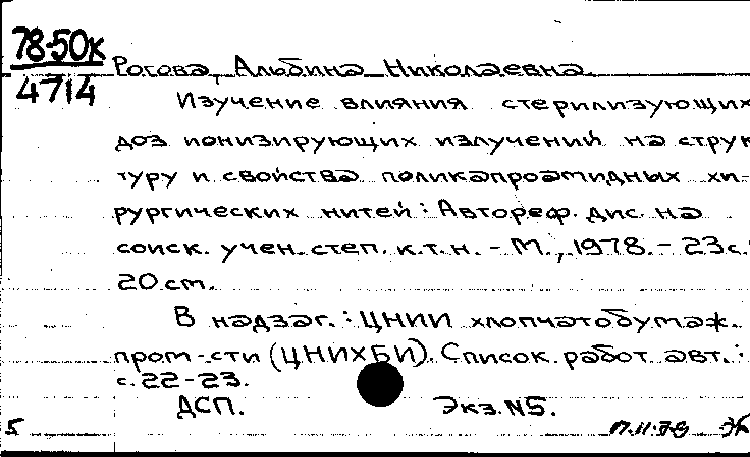 78-50к
4714
Рогова, Альбина Николаевна.
Изучение влияния стерилизующих
доз ионизирующих излучений на струк
туру и свойства поликапроамидных хи-
рургических нитей: Автореф. дис. на
соиск. учен. степ. к.т.н. - М., 1978. - 23 с.
20 см.
В надзаг.: ЦНИИ хлопчатобумаж.
пром-сти (ЦНИХБИ). Список работ авт.:
с. 22-23.
ДСП. Экз. N5.
5